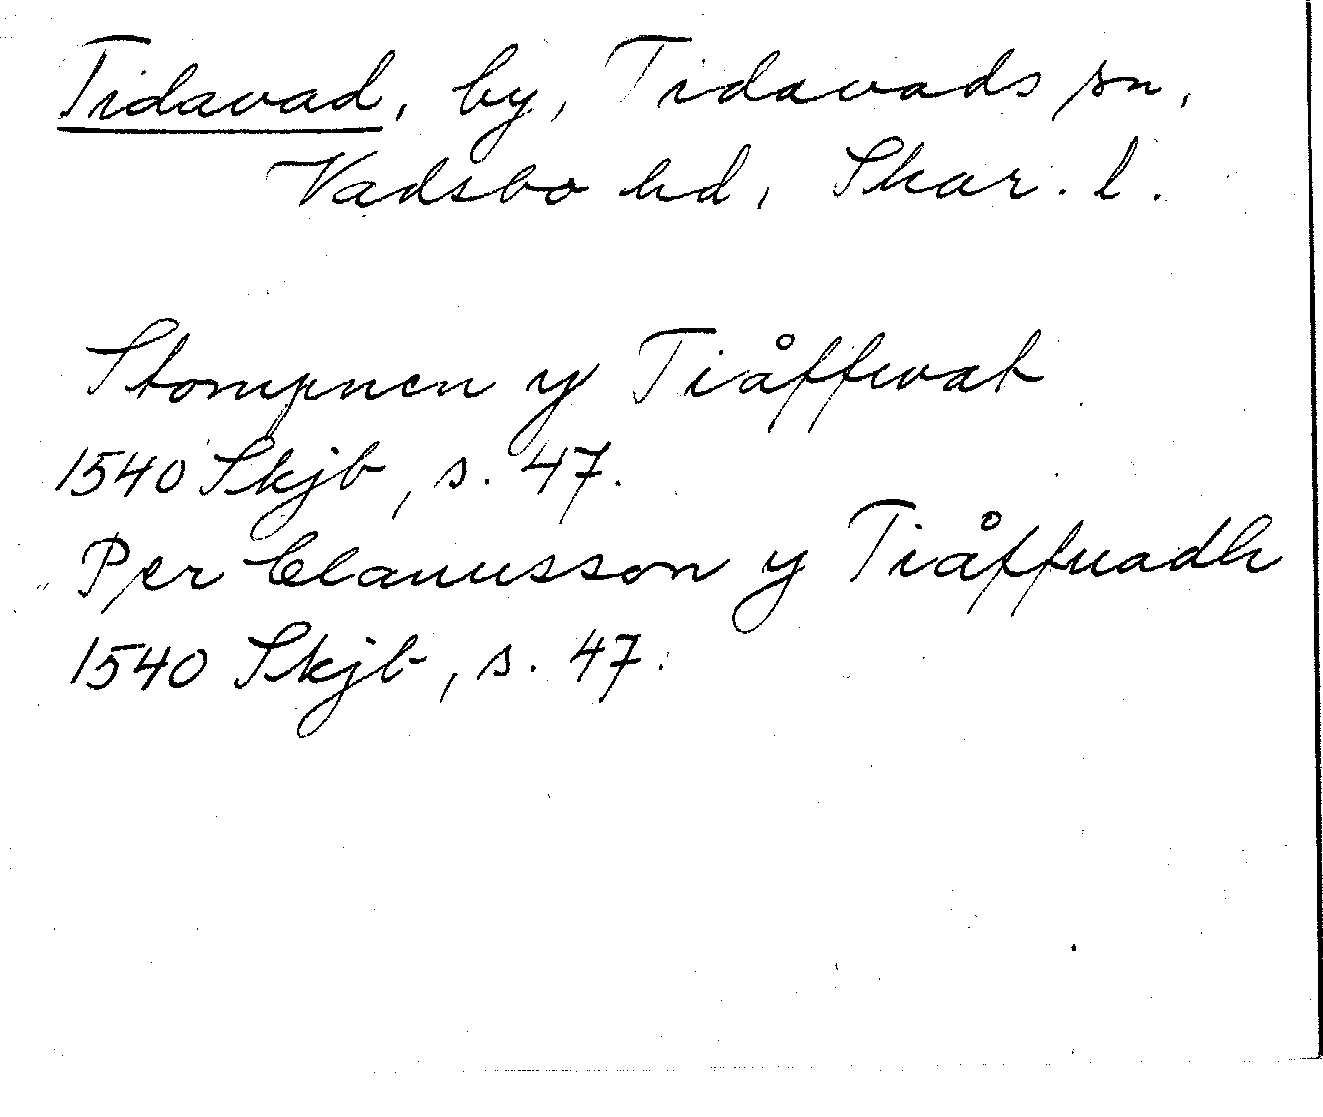 Tidavad, by, Tidavads sn,
Vadsbo hd, Skar. l.
Stompnen y Tiåffwat
1540 Skjb, s. 47.
Per Clauusson y Tiåffuadh
1540 Skjb, s. 47.